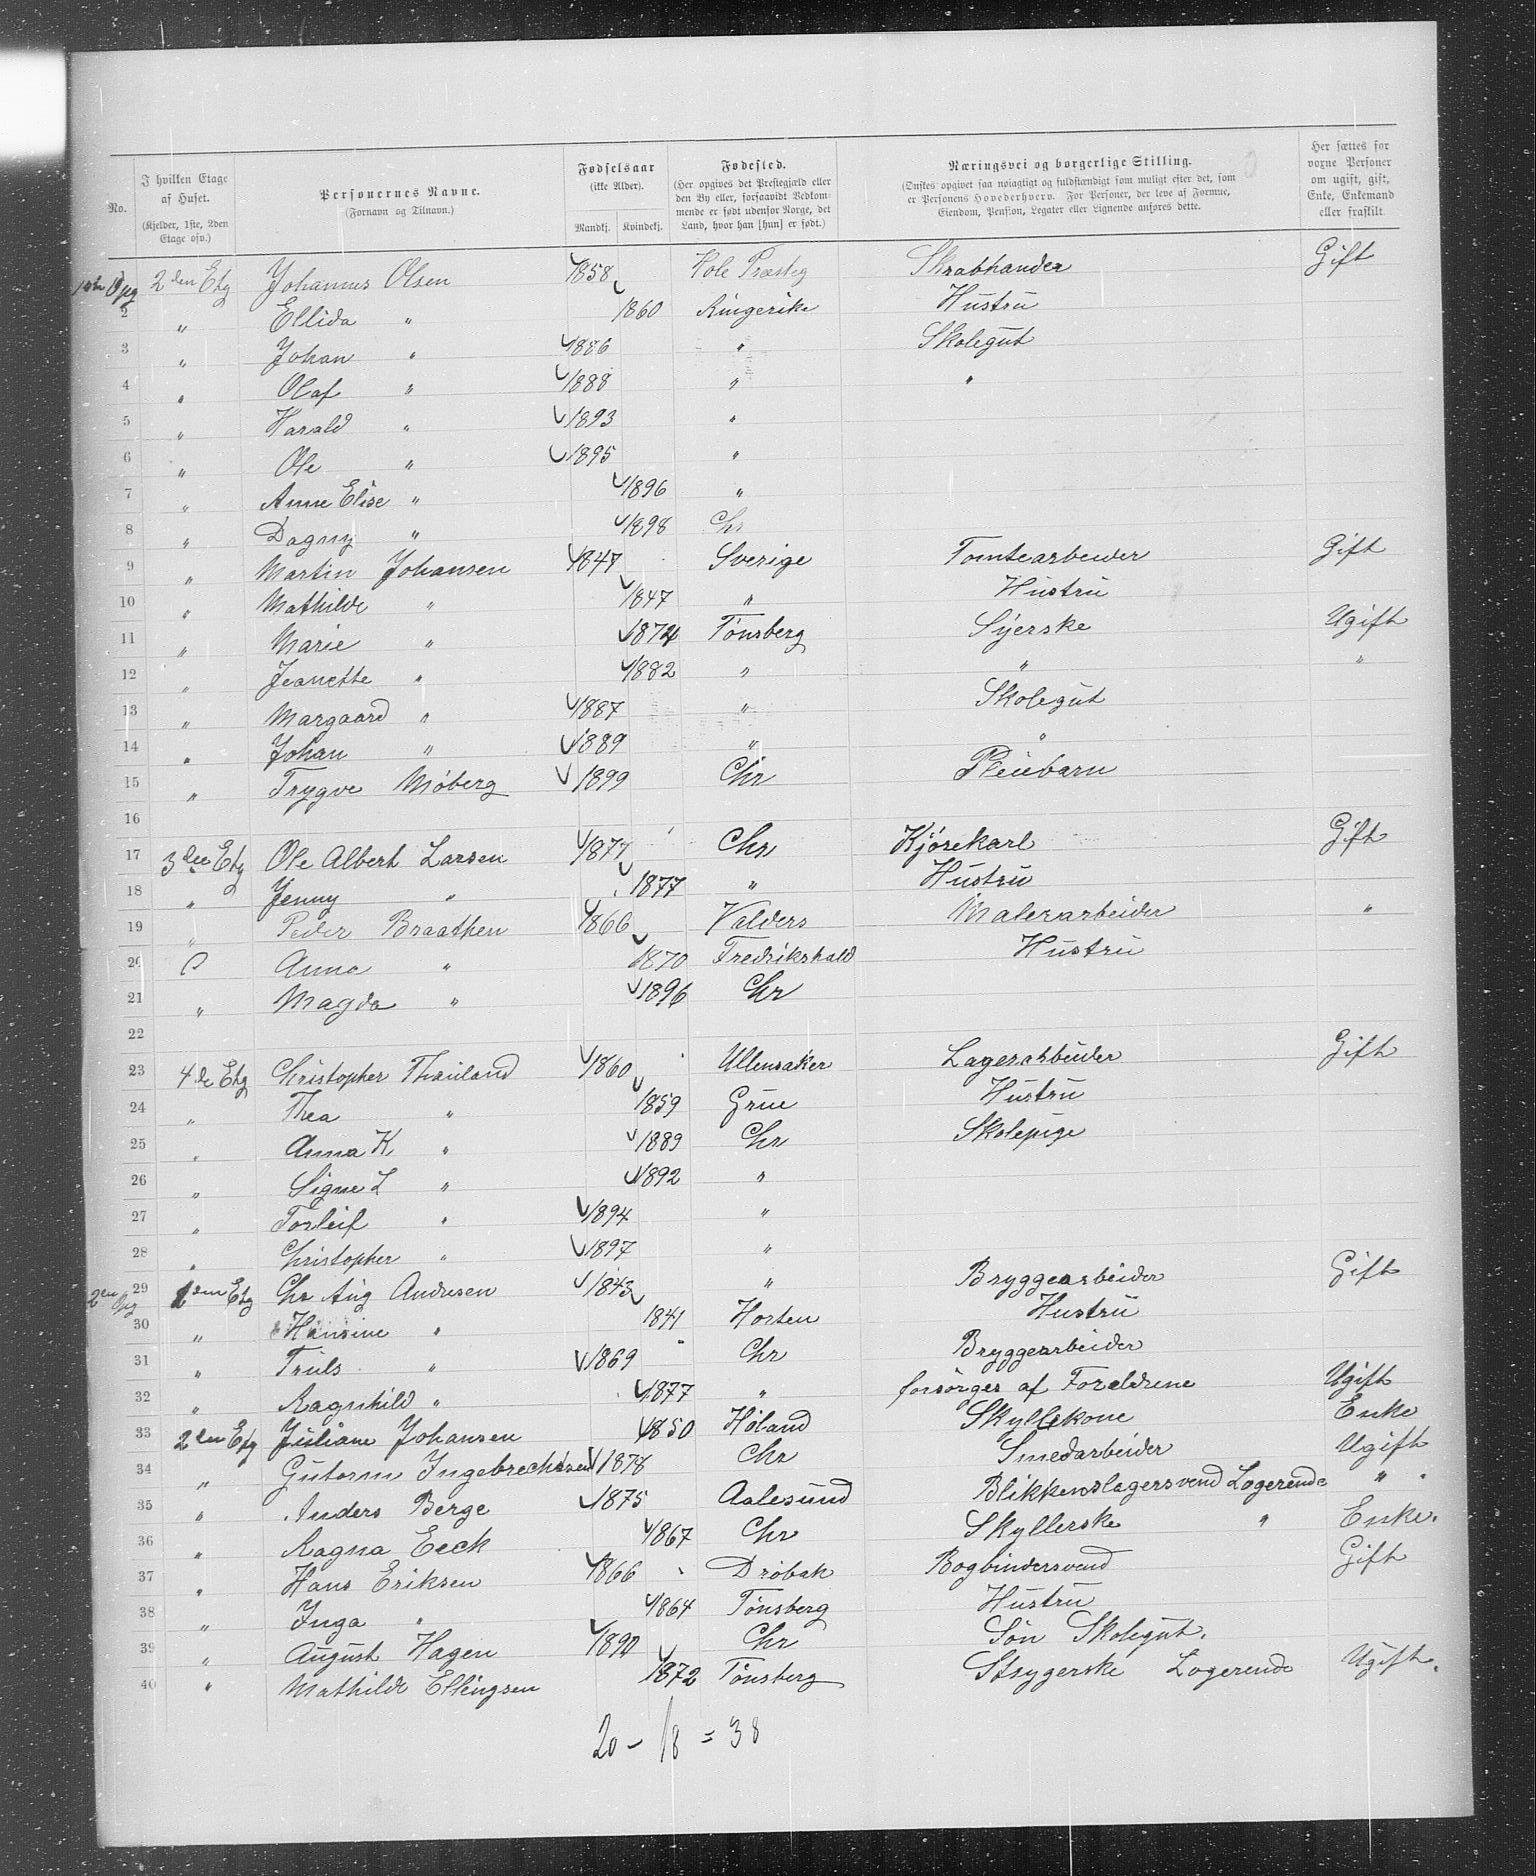 No.
I hvilken Etage af Huset.
(Kjelder, 1ste, 2den Etage osv.)
Personernes Navne.
(Fornavn og Tilnavn.)
Fødselsaar
(ikke Alder).
Mandkj. Kvindekj.
Fødested.
(Her opgives det Prestegjæld eller den By eller, forsaavidt Vedkommende er født udenfor Norge, det Land, hvor han [hun] er født.)
Næringsvei og borgerlige Stilling.
(Ønskes opgivet saa nøiagtigt og fuldstændigt som muligt efter det, som er Personens Hovederhverv. For Personer, der leve af Formue, Eiendom, Pension, Legater eller Lignende anføres dette.
Her sættes for voxne Personer om ugift, gift, Enke, Enkemand eller fraskilt.
1ste Opg 2den Etg Johannus Olsen 1858 Hole Præsteg Skrabhander Gift
2 " Ellida " 1860 Ringerike Hustru
3 " Johan " 1886 " Skolegut
4 " Olaf " 1888 " "
5 " Harald " 1893 "
6 " Ole " 1895 "
7 " Anne Elise " 1896 "
8 " Dagny " 1898 Chr
9 " Martin Johansen 1847 Sverige Tomtearbeider Gift
10 " Mathilde " 1847 " Hustru
11 " Marie " 1874 Tønsberg Syerske Ugift
12 " Jeanette " 1882 " " "
13 " Margaard " 1887 " Skolegut
14 " Johan " 1889 " "
15 " Trygve Møberg 1899 Chr Pleiebarn
16
17 3die Etg Ole Albert Larsen 1877 Chr Kjørekarl Gift
18 " Jenny " 1877 " Hustru
19 " Peder Braathen 1866 Valders Malerarbeider "
20 Anna " 1870 Fredrikshald Hustru
21 " Magda " 1896 Chr
22
23 4de Etg Christopher Thauland 1860 Ullensaker Lagerarbeider Gift
24 " Thea " 1859 Grue Hustru
25 " Anna K " 1889 Chr Skolepige
26 " Signe L " 1892 "
27 " Torleif " 1894 "
28 " Christopher " 1897 "
2en Opg 29 1ste Etg Chr Aug Andresen 1843 " Bryggearbeider Gift
30 " Hansine " 1841 Horten Hustru
31 " Truls " 1869 Chr Bryggearbeider
32 " Ragnhild " 1877 " forsørges af Forældrene Ugift
33 2den Etg Juliane Johansen 1850 Høland Skyllekone Enke
34 " Gutorm Ingebrechtsen 1878 Chr Smedarbeider Ugift
35 " Anders Berge 1875 Aalesund Blikkenslagersvend Logerende "
36 " Ragna Eeck 1867 Chr Skyllerske " Enke.
37 " Hans Eriksen 1866 Drøbak Bogbindersvend Gift
38 " Inga " 1864 Tønsberg Hustru
39 " August Hagen 1890 Chr Søn Skolegut.
40 " Mathilde Ellingsen 1872 Tønsberg Strygerske Logerende Ugift.
20 - 18 = 38